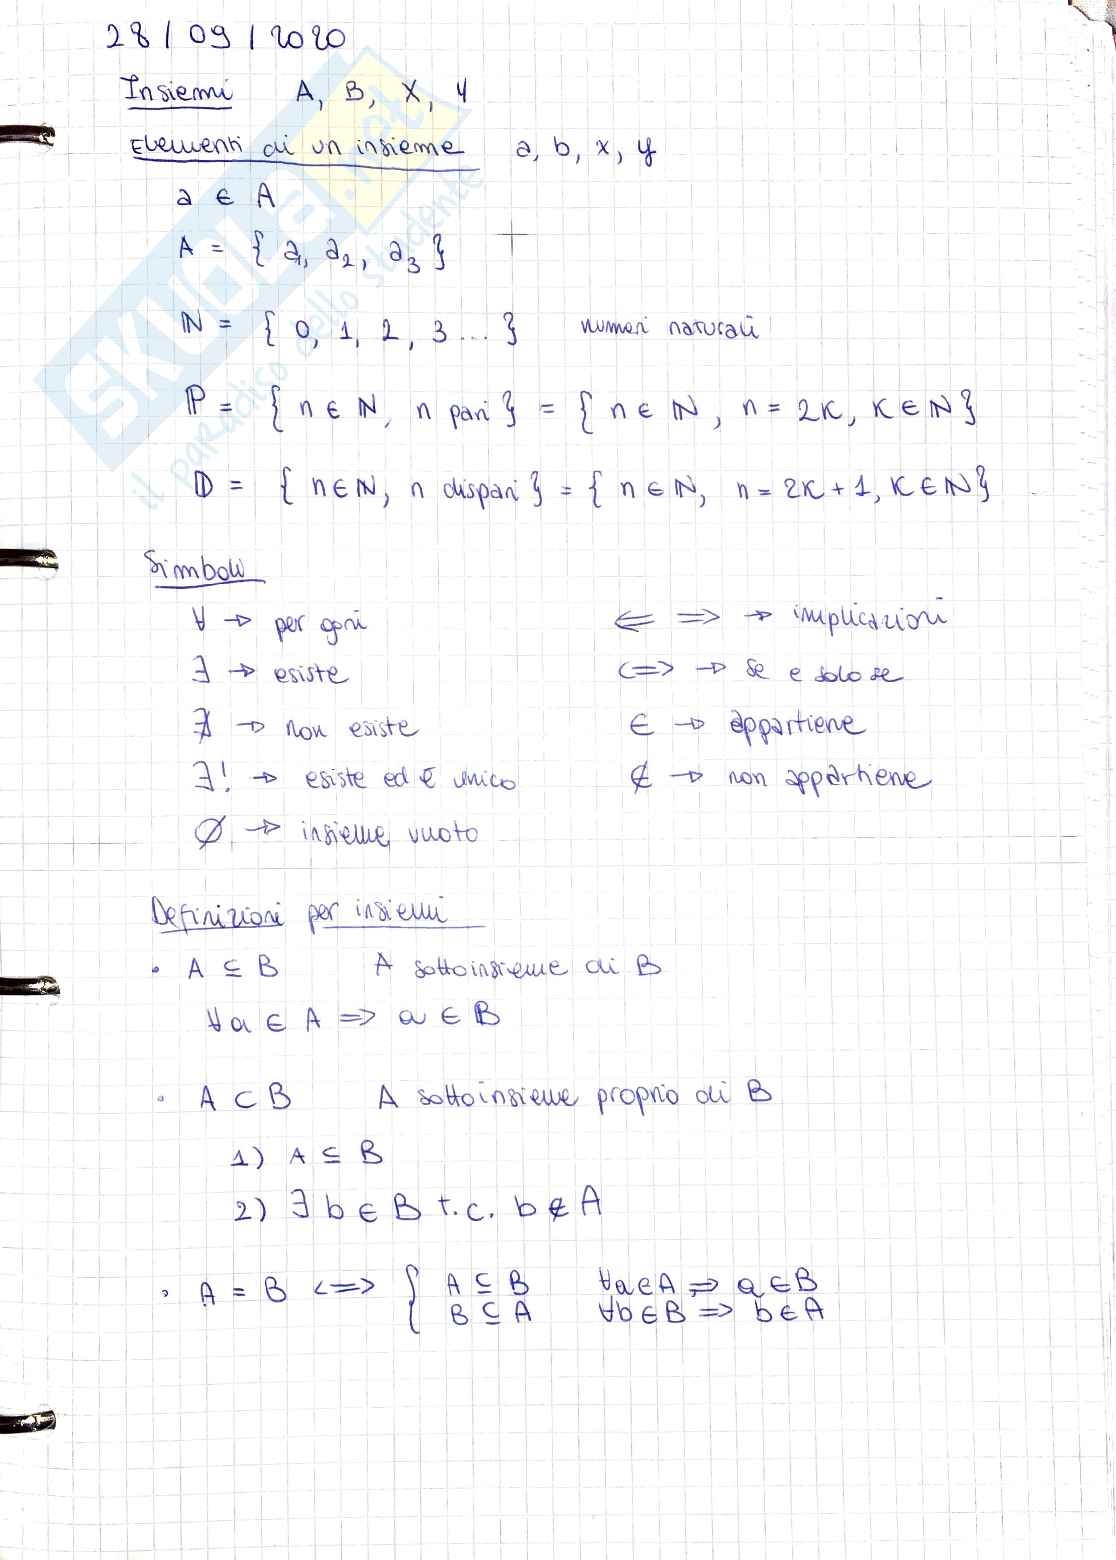 28/09/2020
Insiemi A, B, X, Y
Elementi di un insieme a, b, x, y
a ∈ A
A = { a₁, a₂, a₃ }
ℕ = { 0, 1, 2, 3 ... } numeri naturali
ℙ = { n ∈ ℕ, n pari } = { n ∈ ℕ, n = 2K, K ∈ ℕ }
𝔻 = { n ∈ ℕ, n dispari } = { n ∈ ℕ, n = 2K + 1, K ∈ ℕ }
Simboli
∀ → per ogni
∃ → esiste
∄ → non esiste
∃! → esiste ed è unico
∅ → insieme vuoto
⇐ ⇒ → implicazioni
⇔ → se e solo se
∈ → appartiene
∉ → non appartiene
Definizioni per insiemi
• A ⊆ B A sottoinsieme di B
∀a ∈ A ⇒ a ∈ B
• A ⊂ B A sottoinsieme proprio di B
1) A ⊆ B
2) ∃ b ∈ B t.c. b ∉ A
• A = B ⇔ { A ⊆ B ∀a ∈ A ⇒ a ∈ B
B ⊆ A ∀b ∈ B ⇒ b ∈ A
SKUOLA.net
il paradiso dello studente